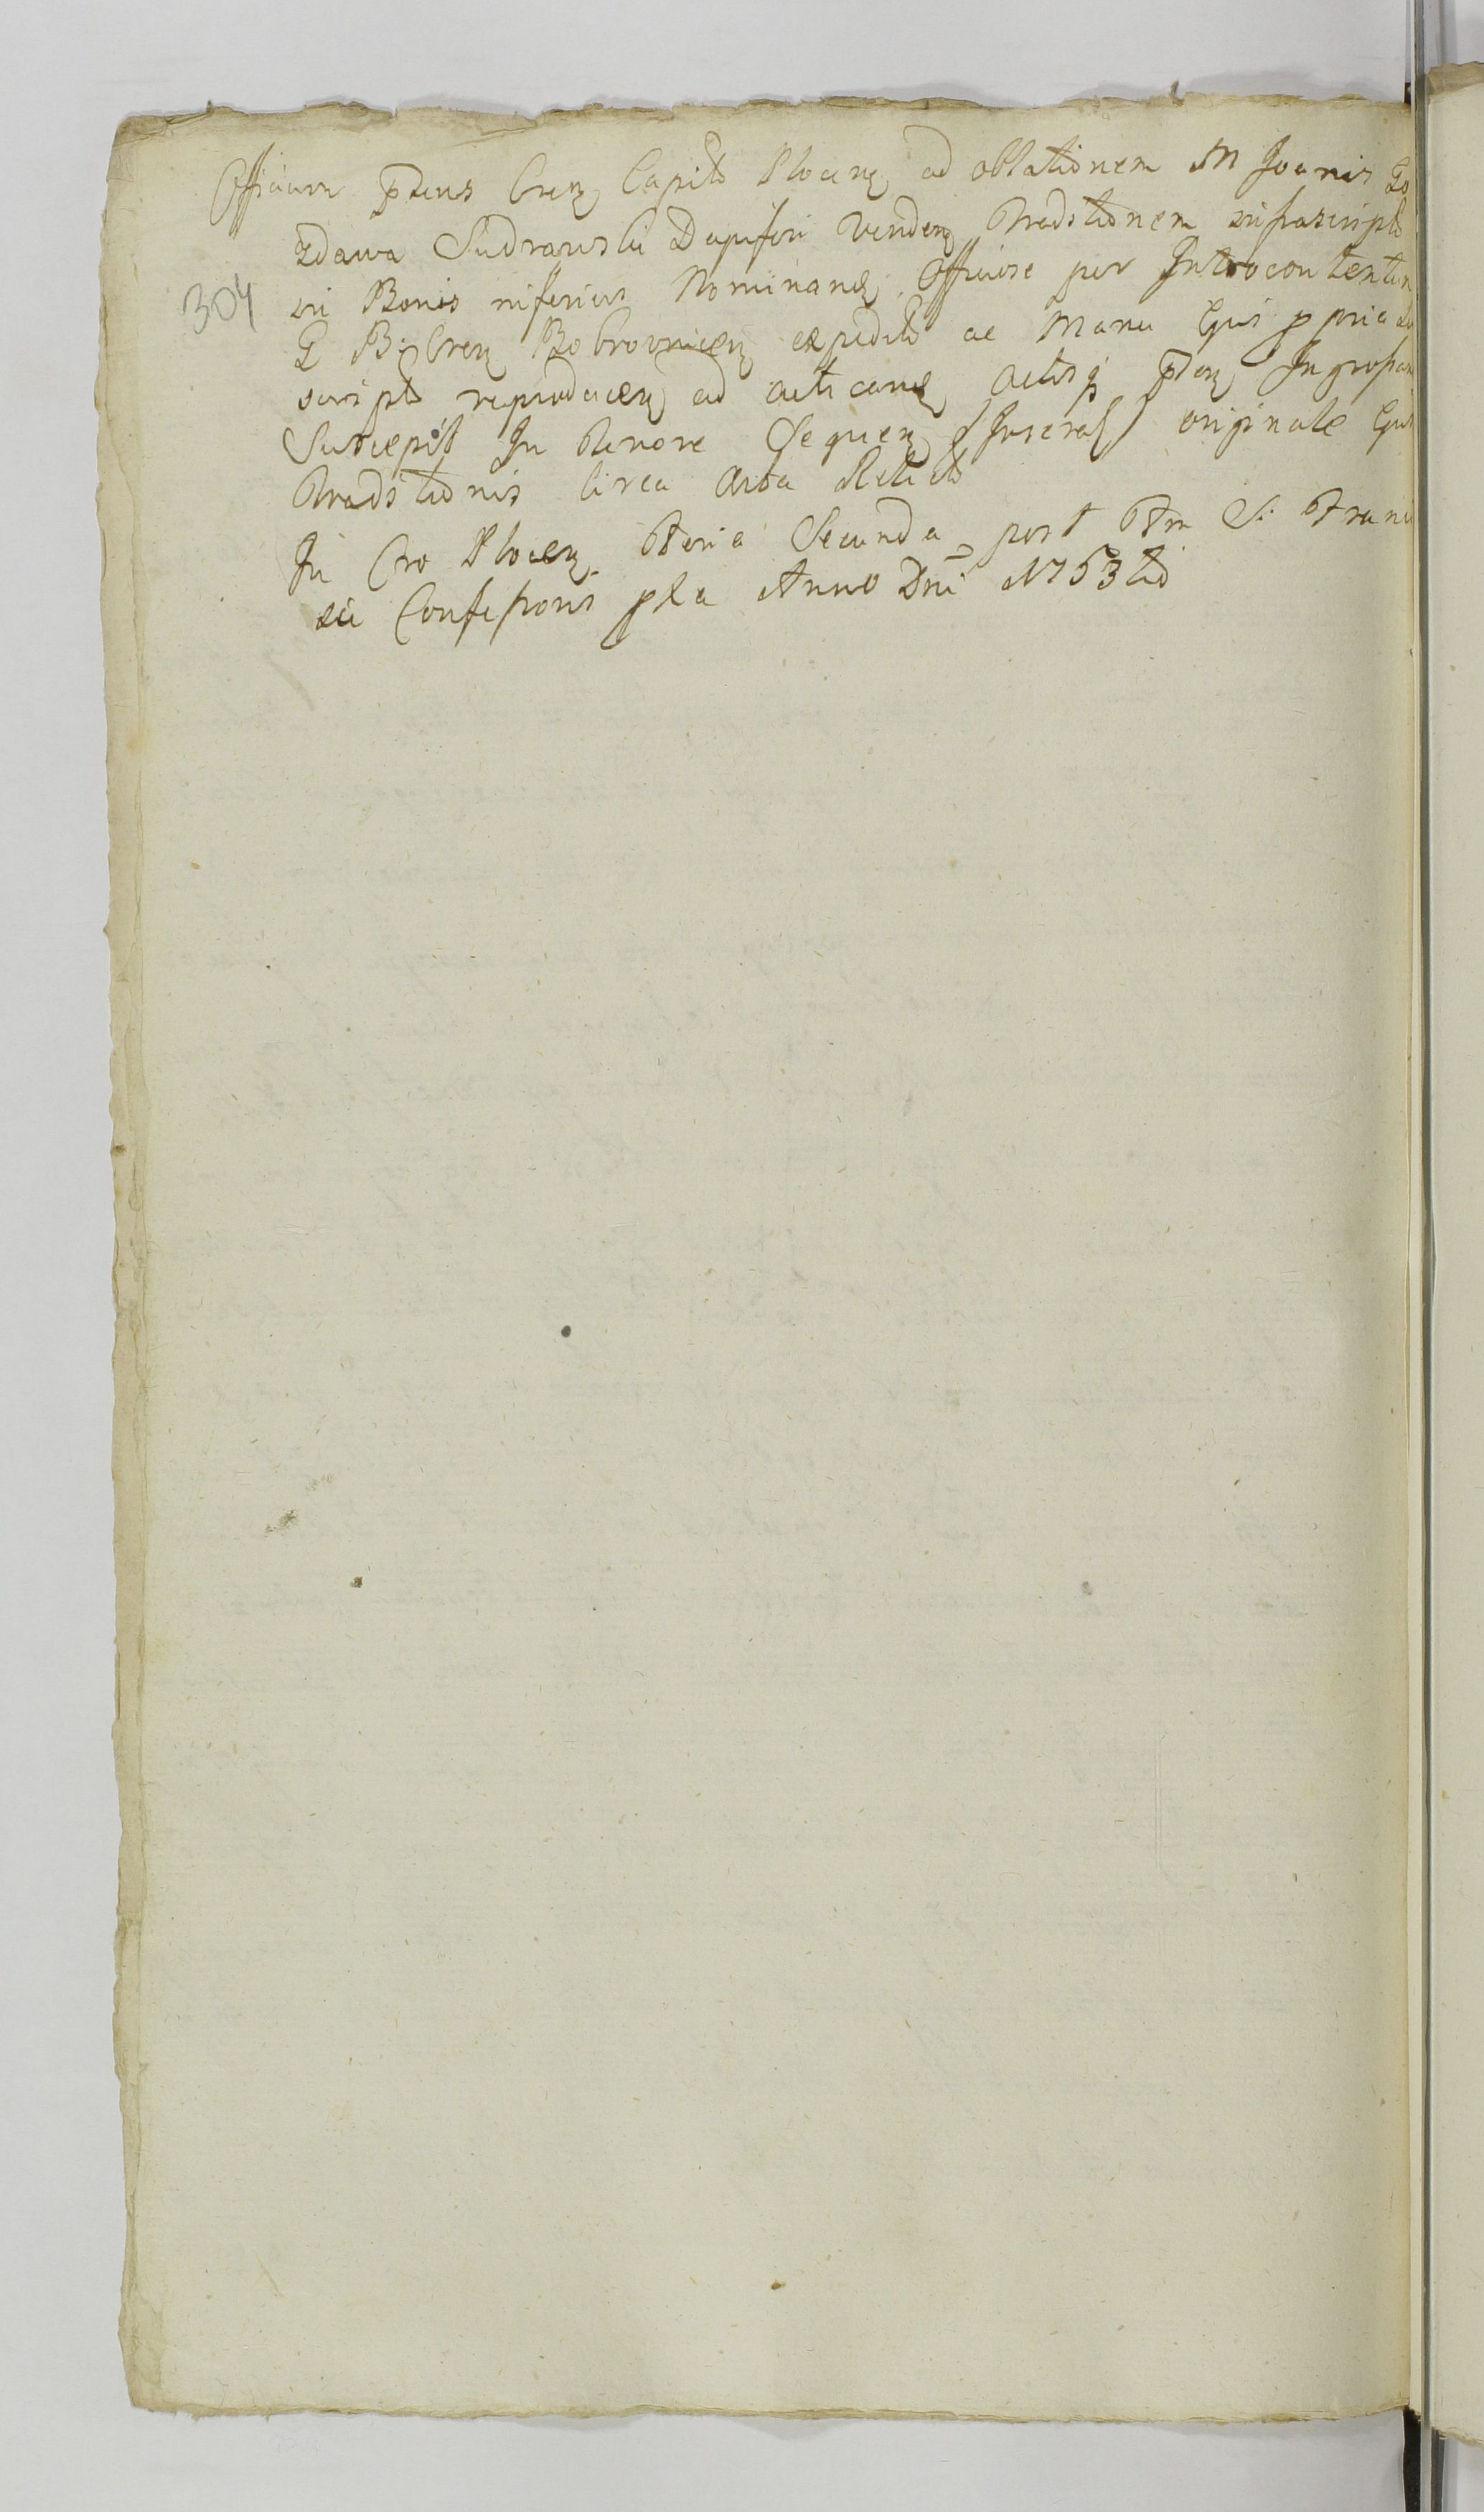 Officium pñs Cren Capit Plocen ad oblationem M Joanis Go
zdawa Sudrawski Dapiferi Venden Traditionem infrascript
in Bonis inferius Nominand Officiose per Introcontentum
G B: Cren Bobrovnicen expedit ac Manu Ejus ppria Sub
script reproducen ad acticand Actisq pñ Ingrossand
Suscepit In Tenore Sequen /Inseras/ originale Ejus
Traditionis circa Acta Relict
304
In Cro Plocen Feria Secunda post Ftm S: Franci
sci Confessoris pla Anno Dni 1753tio